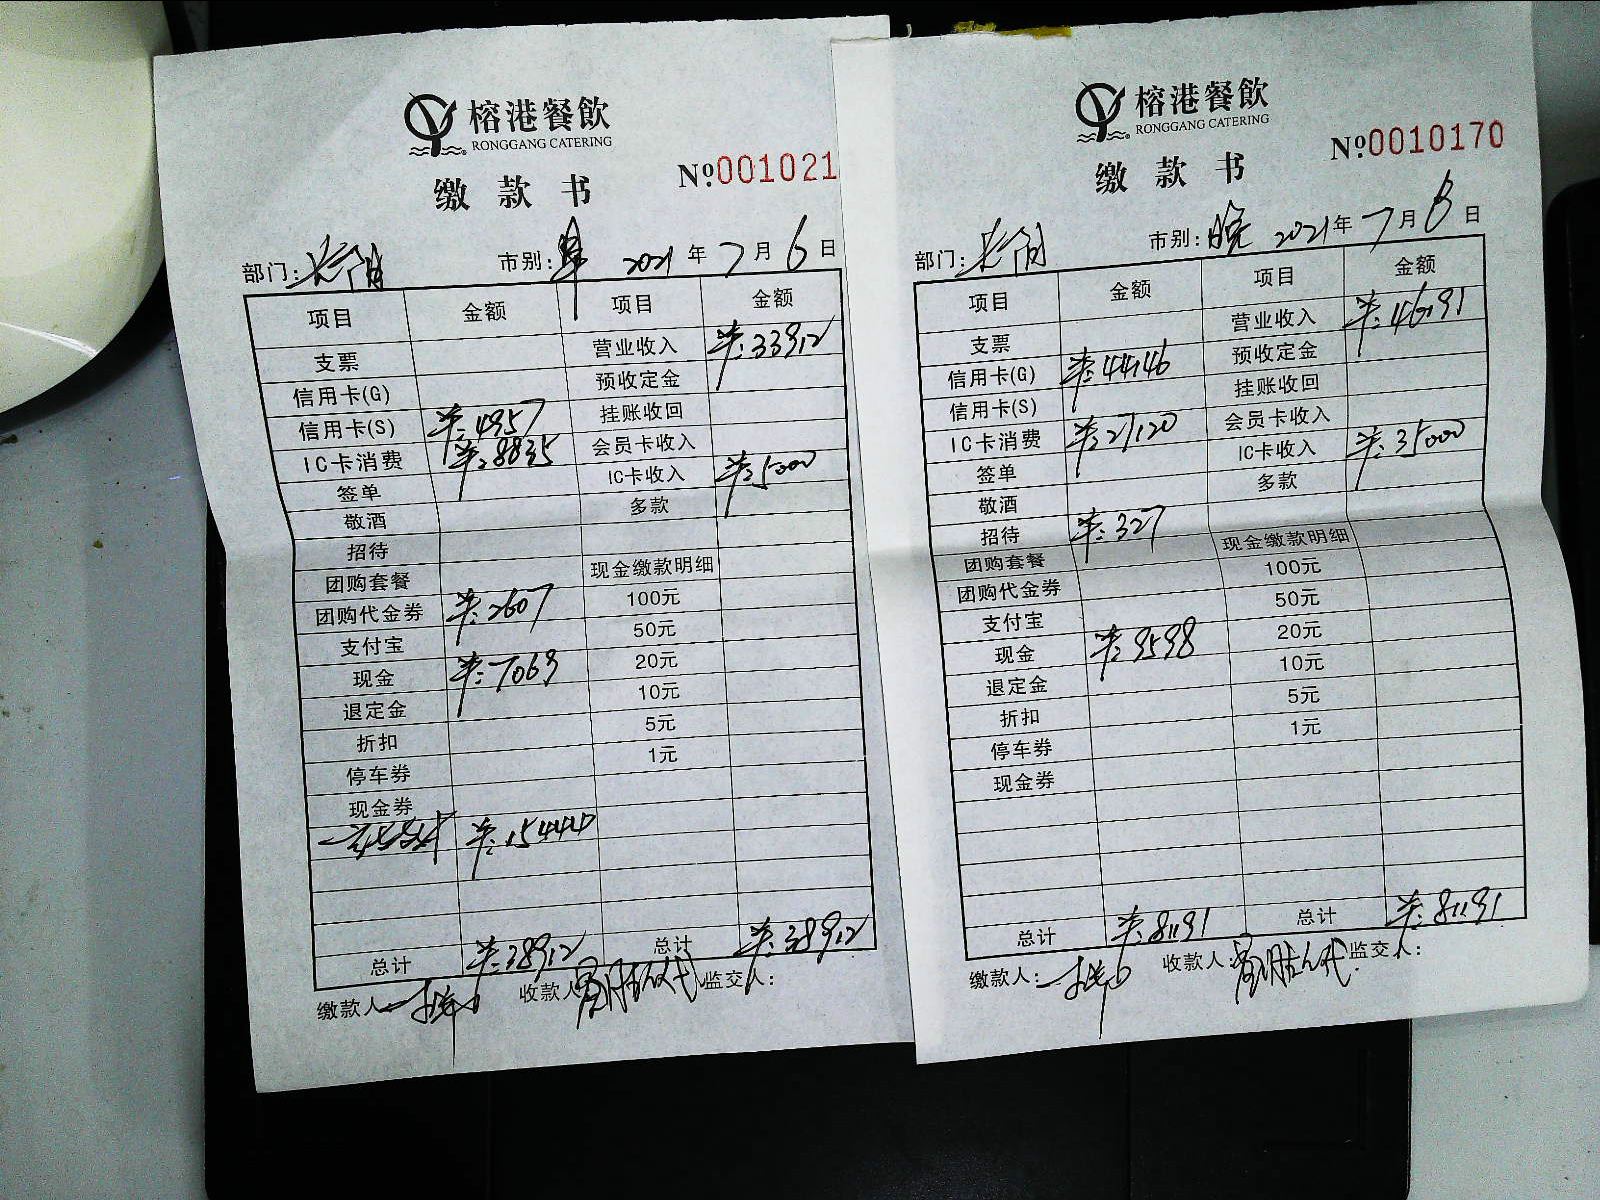 榕港餐飲
RONGGANG CATERING
缴款书
№001021
部门: 市别: 2021年7月6日
项目 金额 项目 金额
支票 营业收入 ¥:33912
信用卡(G) 预收定金
信用卡(S) ¥:4957 挂账收回
IC卡消费 ¥:8835 会员卡收入
签单 IC卡收入 ¥:5000
敬酒 多款
招待
团购套餐 现金缴款明细
团购代金券 ¥:2607 100元
支付宝 50元
现金 ¥:7069 20元
退定金 10元
折扣 5元
停车券 1元
现金券
¥:15444
总计 ¥:38912 总计 ¥:38912
缴款人 收款人 监交人:
榕港餐飲
RONGGANG CATERING
缴款书
№0010170
部门: 市别:晚 2021年7月6日
项目 金额 项目 金额
支票 营业收入 ¥:46191
信用卡(G) ¥:44146 预收定金
信用卡(S) 挂账收回
IC卡消费 ¥:27120 会员卡收入
签单 IC卡收入 ¥:35000
敬酒 多款
招待 ¥:327
团购套餐 现金缴款明细
团购代金券 100元
支付宝 50元
现金 ¥:9598 20元
退定金 10元
折扣 5元
停车券 1元
现金券
总计 ¥:81191 总计 ¥:81191
缴款人: 收款人: 监交人: